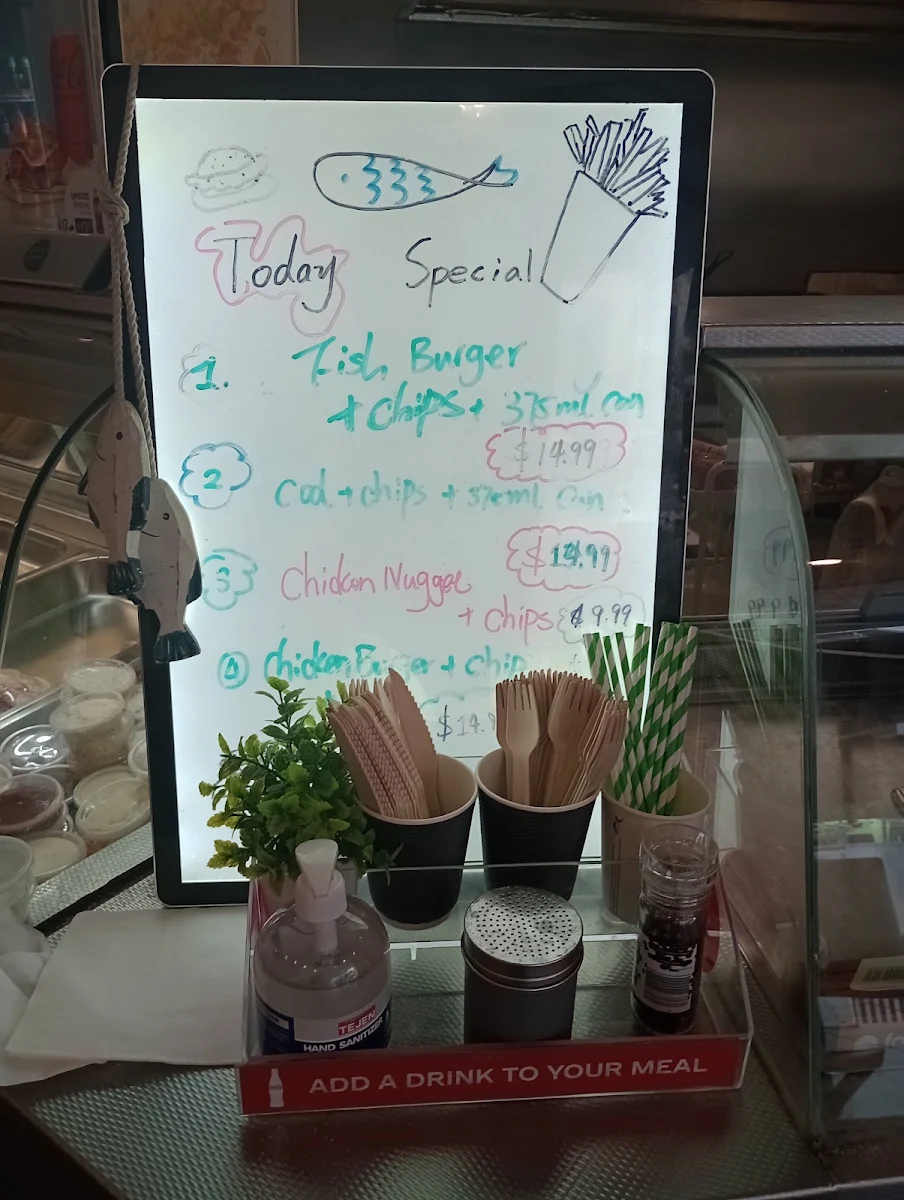 Today Special
1. Fish Burger
+ chips + 375ml can
$14.99
2 Cod + chips + 375ml can
3 Chicken Nugget
+ chips $9.99
4 Chicken Burger + chip
$14.9
TEJEN
HAND SANITIZER
ADD A DRINK TO YOUR MEAL